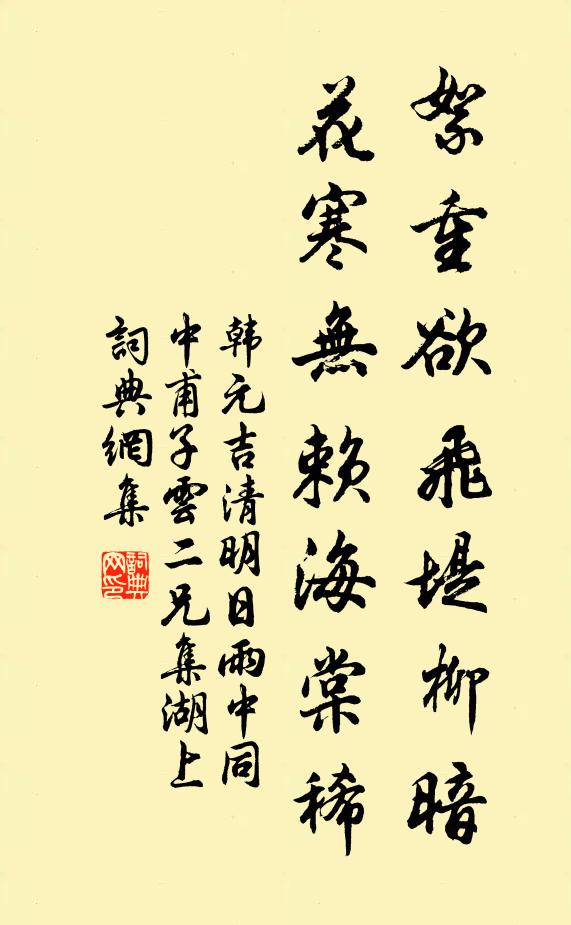 絮重欲飛堤柳暗
花寒無賴海棠稀
韩元吉清明日雨中同
中甫子雲二兄集湖上
詞典網集
詞典
网印